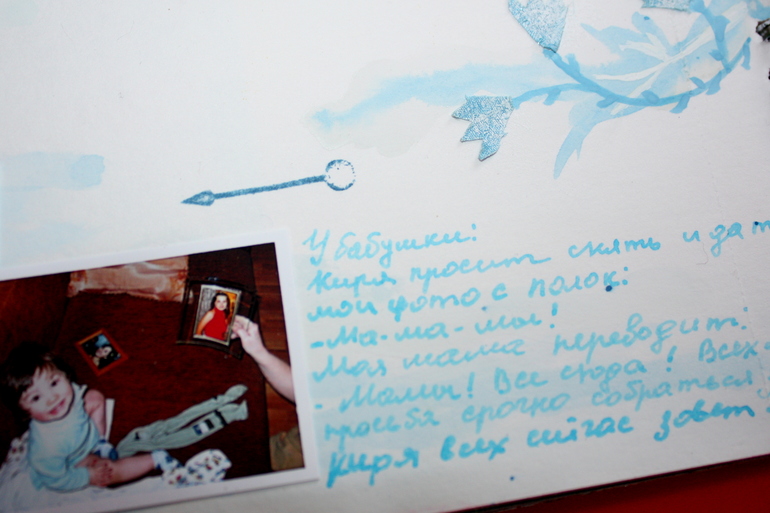 У бабушки:
Киря просит снять и дат
мои фото с полок:
- Ма-ма-мы!
Моя мама переводит:
- Мамы! Все сюда! Всех-
просьба срочно собраться
Киря всех сейчас зовёт